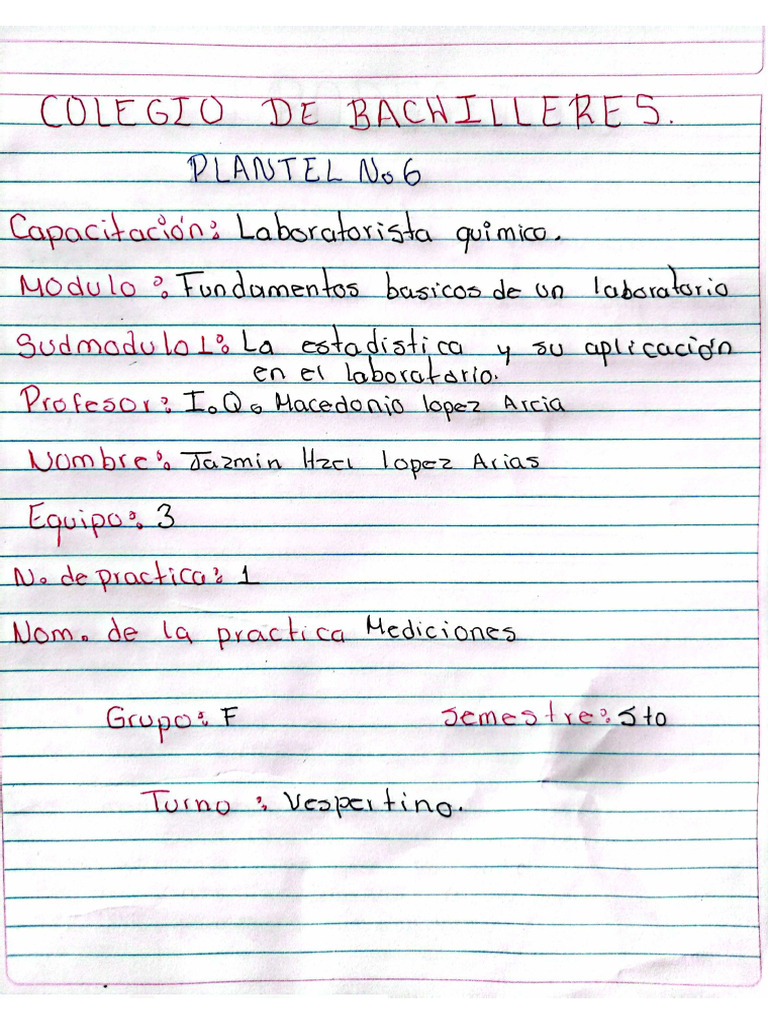 COLEGIO DE BACHILLERES.
PLANTEL No 6
Capacitación: Laboratorista quimico.
Modulo: Fundamentos basicos de un laboratorio
Sudmodulo 1: La estadistica y su aplicación
en el laboratorio.
Profesor: I.Q. Macedonio lopez Arcia
Nombre: Jazmin lopez Arias
Equipo: 3
N. de practica: 1
Nom. de la practica Mediciones
Grupo: F Semestre: 5to
Turno: Vespertino.